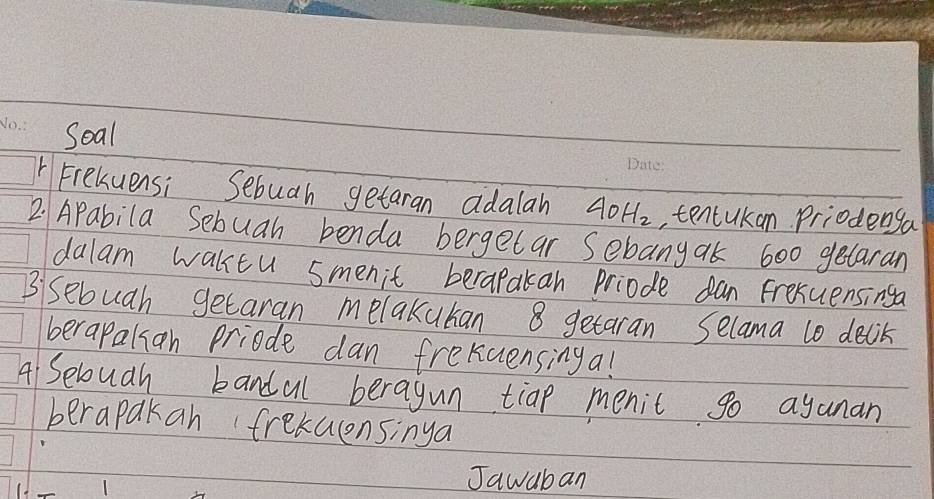 No.:
Soal
Date:
1 Frekuensi Sebuah getaran adalah 40Hz, tentukan Priodenya
2. APabila Sebuah benda bergetar Sebanyak 600 getaran
dalam waktu 5menit berapakah Priode dan Frekuensinya
3. Sebuah getaran melakukan 8 getaran Selama 10 detik
berapakah priode dan frekuensinya!
4 Sebuah bandul berayun tiap menit 90 ayunan
berapakah frekuensinya
Jawaban